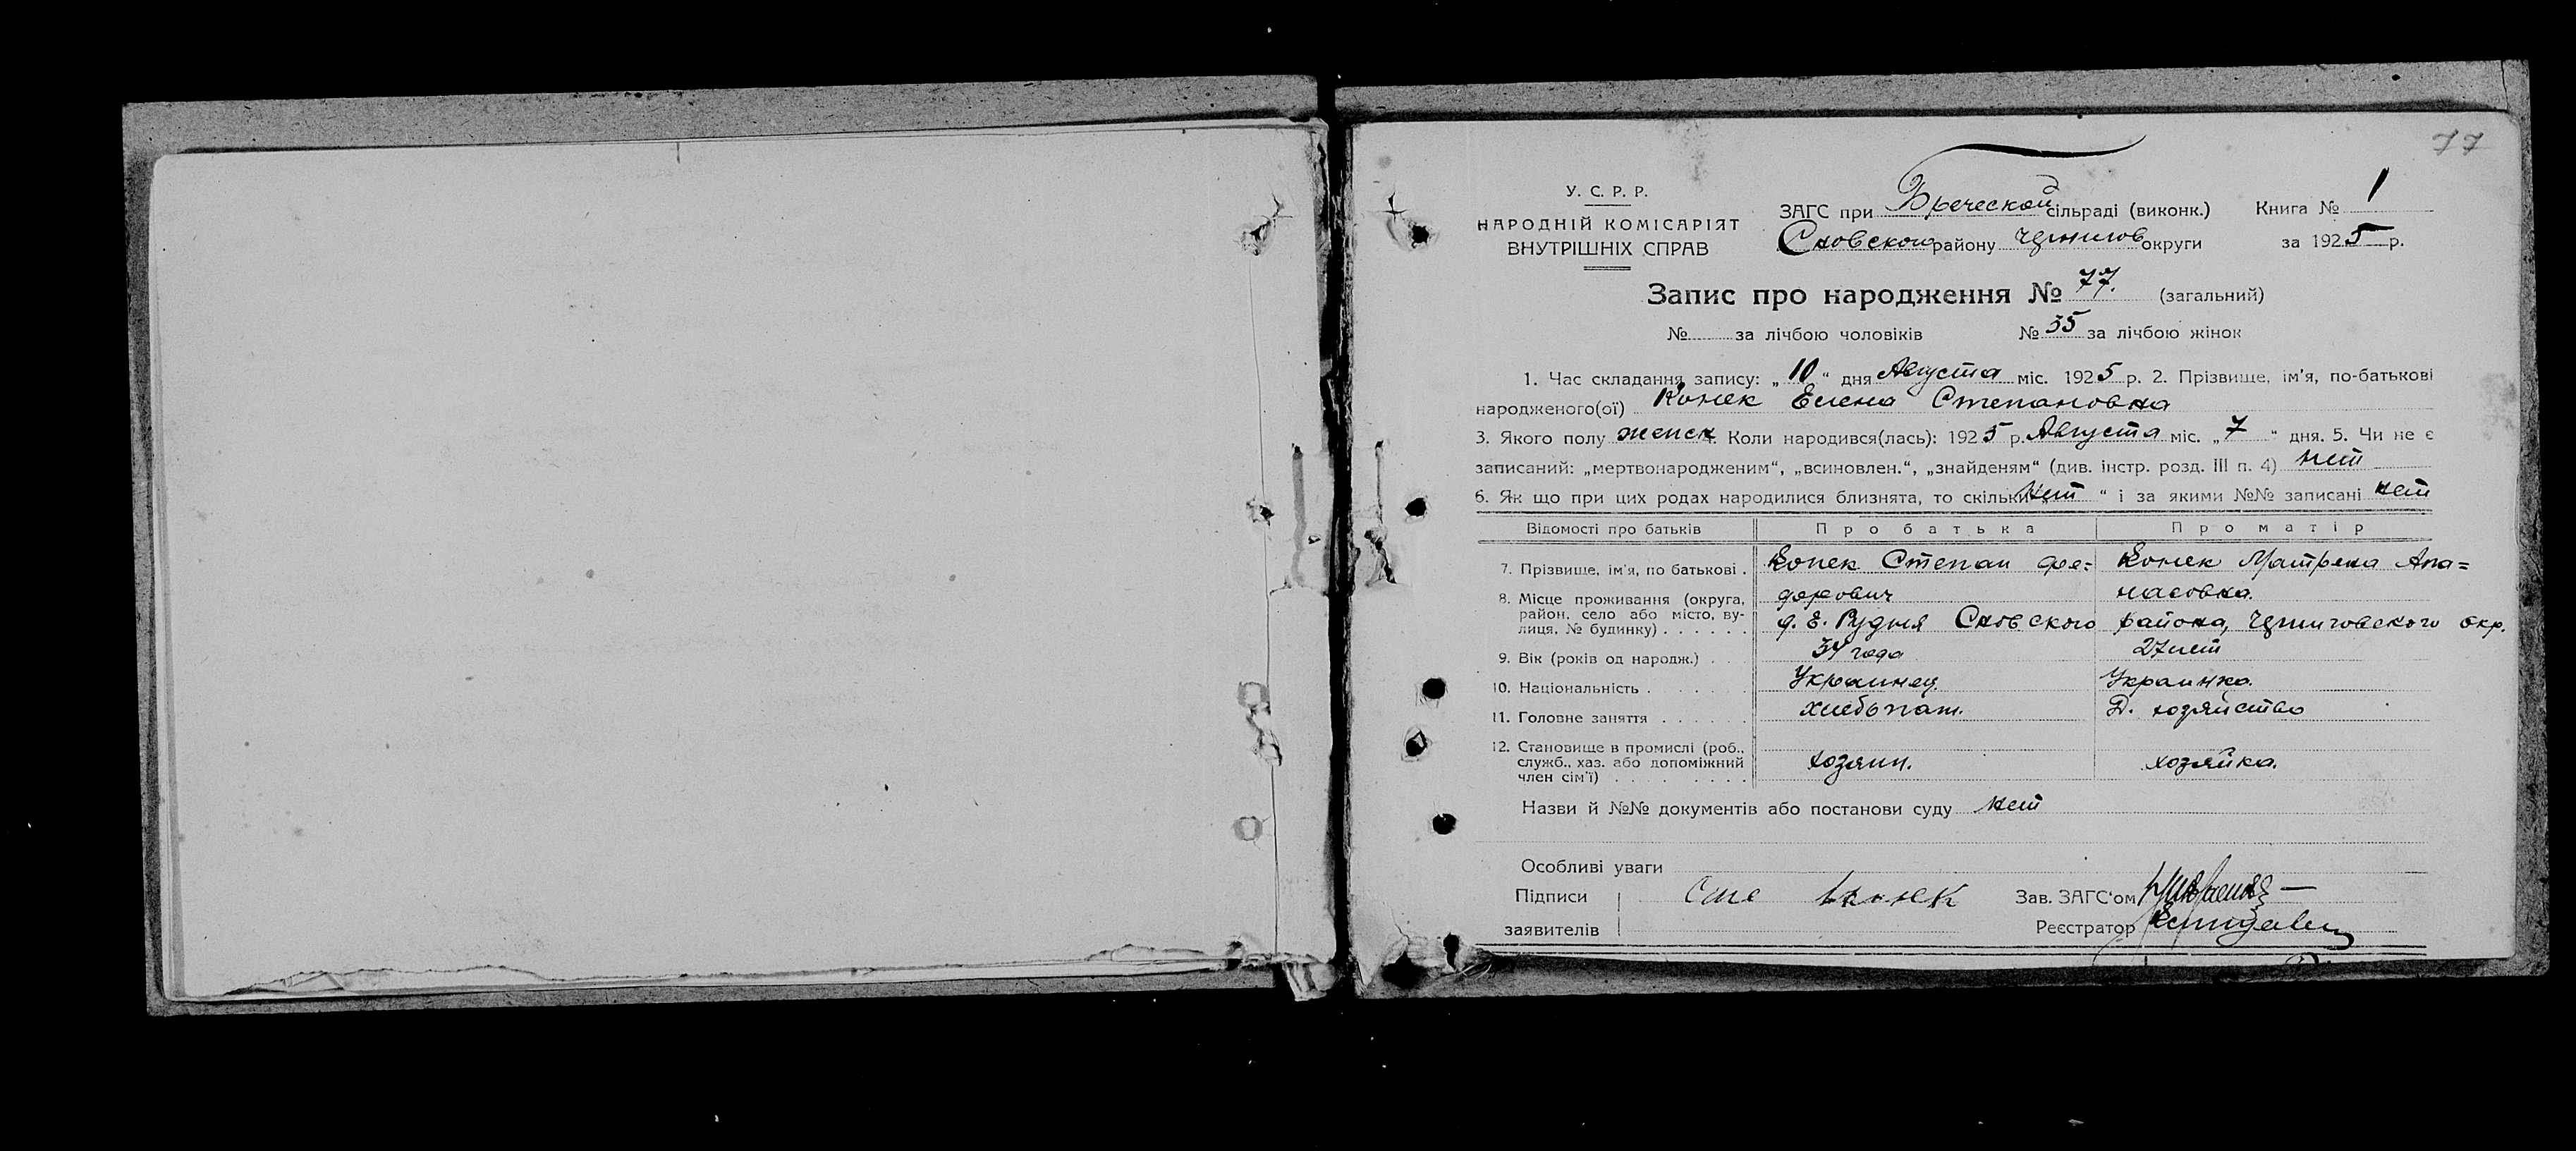 77
У. С. Р. Р.
НАРОДНІЙ КОМІСАРІЯТ
ВНУТРІШНІХ СПРАВ
ЗАГС при Бреческой сільраді (виконк.) Книга № 1
Сновского району Чернигов округи за 1925 р.
Запис про народження № 77. (загальний)
№ за лічбою чоловіків № 35 за лічбою жінок
1. Час складання запису: „10“ дня Августа міс. 1925 р. 2. Прізвище, ім'я, по-батькові
народженого(ої) Конек Елена Степановна
3. Якого полу женск 4. Коли народився(лась): 1925 р. Августа міс. „7“ дня. 5. Чи не є
записаний: „мертвонародженим“, „всиновлен.“, „знайденям“ (див. інстр. розд. III п. 4) нет
6. Як що при цих родах народилися близнята, то скільки нет “ і за якими №№ записані нет
Відомості про батьків Про батька Про матір
7. Прізвище, ім'я, по батькові . Конек Степан Фе= Конек Матрена Апа=
дорович насовна.
8. Місце проживання (округа,
район, село або місто, ву-
лиця, № будинку) . . . . . . д. Е. Рудня Сновского района, Черниговского окр.
9. Вік (років од народж.) . . . 34 года 27 лет
10. Національність . . . . . . Украинец. Украинка.
11. Головне заняття . . . . . . хлебопаш. Д. хозяйство
12. Становище в промислі (роб.,
служб., хаз. або допоміжний
член сім'ї) . . . . . . . . хозяин. хозяйка.
Назви й №№ документів або постанови суду нет
Особливі уваги
Підписи Сте Конек Зав. ЗАГС'ом
заявителів Реєстратор